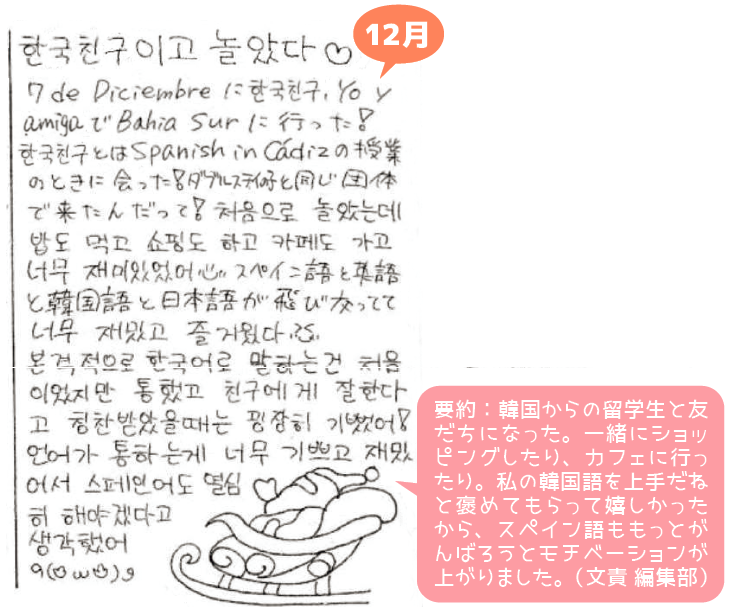 12月
한국친구이고 놀았다♡
7 de Diciembre に한국친구, Yo y
amigaでBahia Surに行った!
한국친구とはSpanish in Cádizの授業
のときに会った!ダブルスティの子と同じ団体
で来たんだって!처음으로 놀았는데
밥도 먹고 쇼핑도 하고 카페도 가고
너무 재미있었어 スペイン語と英語
と韓国語と日本語が飛び交ってて
너무 재밌고 즐거웠다
본격적으로 한국어로 말하는건 처음
이었지만 통했고 친구에게 잘한다
고 칭찬받았을때는 굉장히 기뻤어!
언어가 통하는게 너무 기쁘고 재밌
어서 스페인어도 열심
히 해야겠다고
생각했어
9(♡ω♡)9
要約:韓国からの留学生と友
だちになった。一緒にショッ
ピングしたり、カフェに行っ
たり。私の韓国語を上手だね
と褒めてもらって嬉しかった
から、スペイン語ももっとが
んばろうとモチベーションが
上がりました。(文責 編集部)